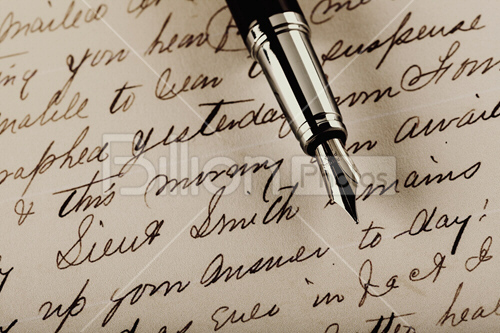 mailed
ing you hear
unable to bear suspense
raphed yesterday from
& this morning an await
Billion Photos
Lieut Smith remains
up your answer to-day!
as ever in fact I
hear